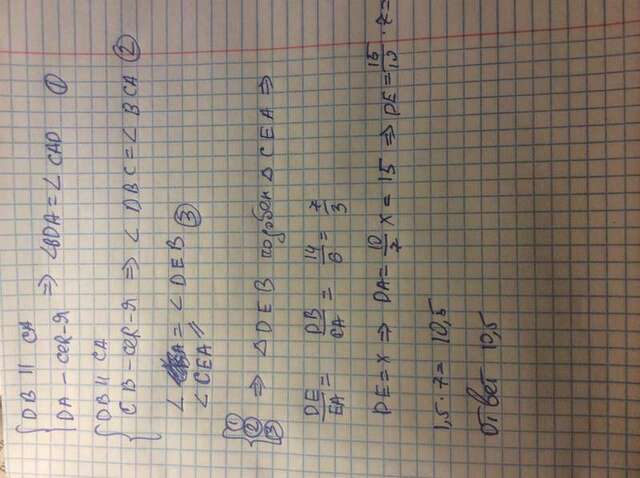 DB || CA
DA - сек-я => ∠BDA = ∠ CAD ①
DB || CA
CB - сек-я => ∠ DBC = ∠ BCA ②
∠ = ∠ DEB ③
∠ CEA
①
②
③
=> △ DEB подобен △ CEA =>
DE/EA = DB/CA = 14/6 = 7/3
DE = x => DA = 10/7 x = 15 => DE = 15/10 · 7 =
1,5 · 7 = 10,5
Ответ 10,5